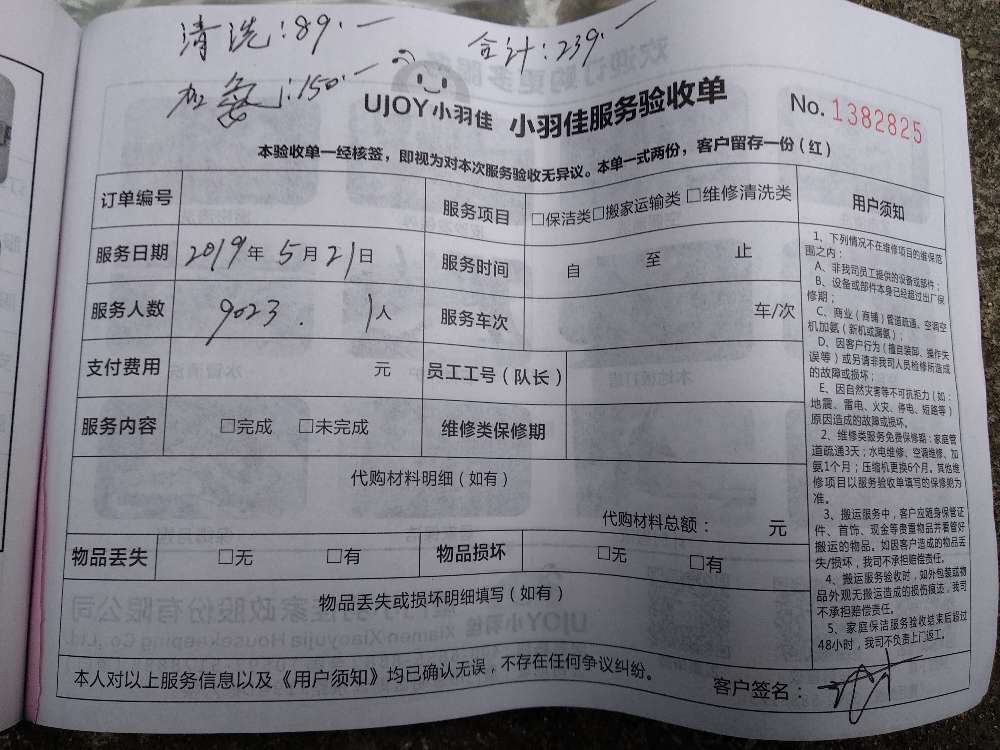 清洗:89.一
合计:239.一
加氨:150.一
UJOY小羽佳 小羽佳服务验收单
No.1382825
本验收单一经核签，即视为对本次服务验收无异议。本单一式两份，客户留存一份（红）
订单编号 服务项目 □保洁类□搬家运输类 □维修清洗类
服务日期 2019年 5月21日 服务时间 自 至 止
服务人数 9023. 1人 服务车次 车/次
支付费用 元 员工工号（队长）
服务内容 □完成 □未完成 维修类保修期
代购材料明细（如有）
代购材料总额： 元
物品丢失 □无 □有 物品损坏 □无 □有
物品丢失或损坏明细填写（如有）
本人对以上服务信息以及《用户须知》均已确认无误，不存在任何争议纠纷。
客户签名：
用户须知
1、下列情况不在维修项目的维保范
围之内：
A、非我司员工提供的设备或部件；
B、设备或部件本身已经超过出厂保
修期；
C、商业（商铺）管道疏通、空调空
机加氨（新机或漏氨）；
D、因客户行为（擅自装卸、操作失
误等）或另请非我司人员检修所造成
的故障或损坏；
E、因自然灾害等不可抗拒力（如：
地震、雷电、火灾、停电、短路等）
原因造成的故障或损坏。
2、维修类服务免费保修期：家庭管
道疏通3天；水电维修、空调维修、加
氨1个月；压缩机更换6个月。其他维
修项目以服务验收单填写的保修期为
准。
3、搬运服务中，客户应随身保管证
件、首饰、现金等贵重物品并看管好
搬运的物品。如因客户造成的物品丢
失/损坏，我司不承担赔偿责任。
4、搬运服务验收时，如外包装或物
品外观无搬运造成的损伤痕迹，我司
不承担赔偿责任。
5、家庭保洁服务验收结束后超过
48小时，我司不负责上门返工。